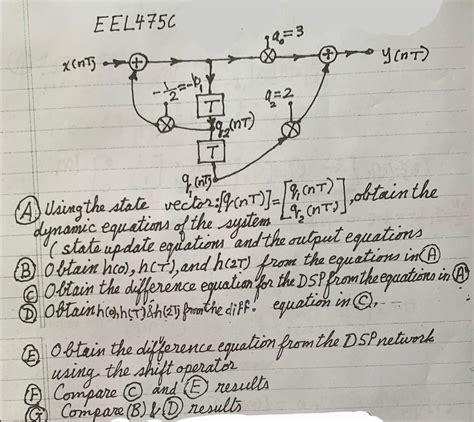 EEL475C
a₀=3
x(nT)
y(nT)
-1/2=-b₁
T
a₂=2
q₂(nT)
T
q₁(nT)
(A) Using the state vector:[q(nT)]=[q₁(nT) q₂(nT)], obtain the
dynamic equations of the system
(state update equations and the output equations
(B) Obtain h(0), h(T), and h(2T) from the equations in (A)
(C) Obtain the difference equation for the DSP from the equations in (A)
(D) Obtain h(0), h(T) & h(2T) from the diff. equation in (C).
(E) Obtain the difference equation from the DSP network
using the shift operator
(F) Compare (C) and (E) results
(G) Compare (B) & (D) results